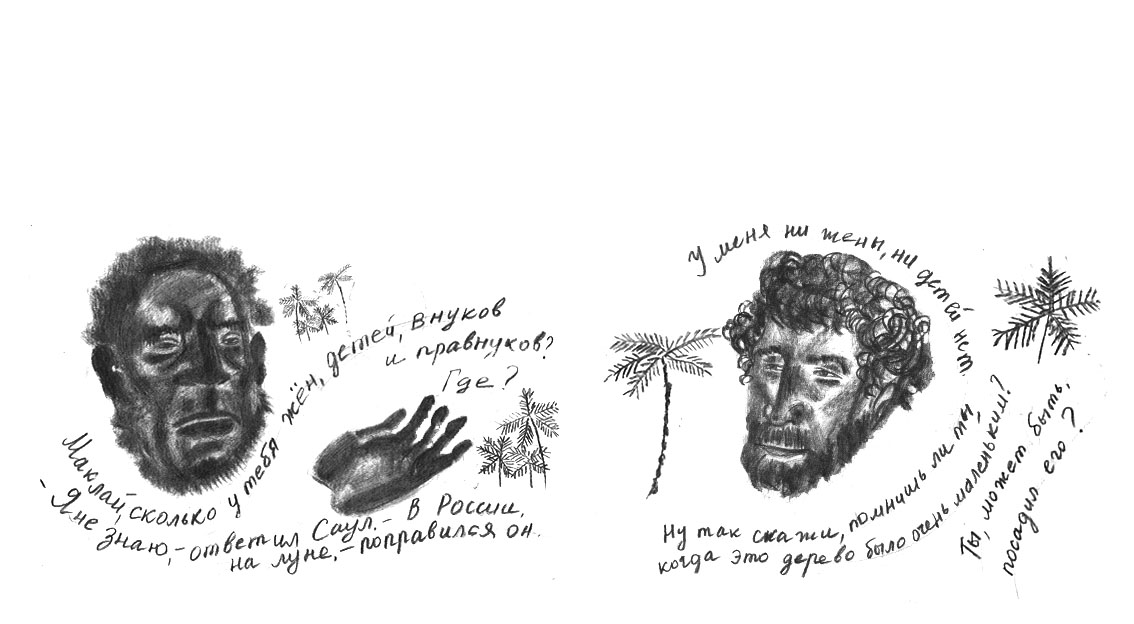 Маклай, сколько у тебя жён, детей, внуков
и правнуков?
Где?
- Я не знаю,- ответил Саул.- В России,
на луне,- поправился он.
У меня ни жены, ни детей нет
Ну так скажи, помнишь ли ты
когда это дерево было очень маленьким?
Ты, может быть,
посадил его?